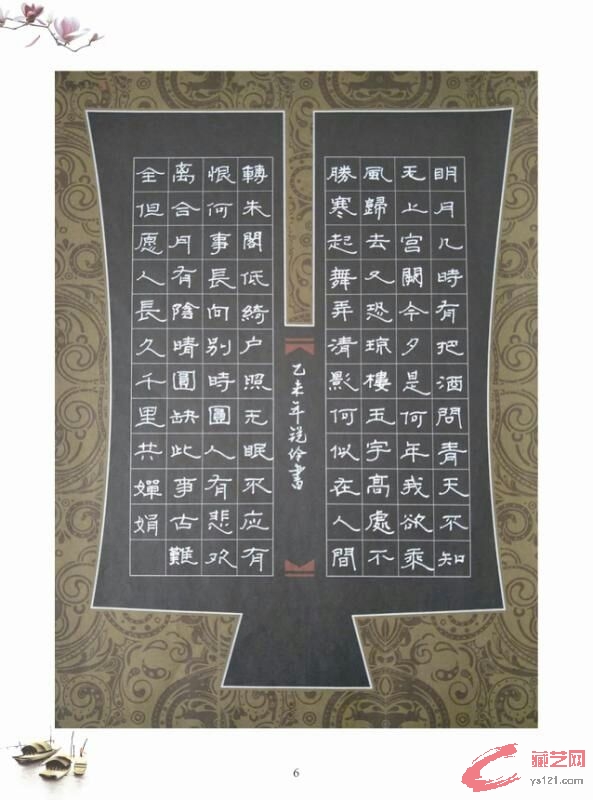 明月几時有把酒問青天不知
天上宫闕今夕是何年我欲乘
風歸去又恐琼樓玉宇高處不
勝寒起舞弄清影何似在人間
乙未年書
轉朱閣低綺户照无眠不应有
恨何事長向别時圓人有悲欢
离合月有陰晴圓缺此事古難
全但愿人長久千里共嬋娟
6
藏艺网
ys121.com